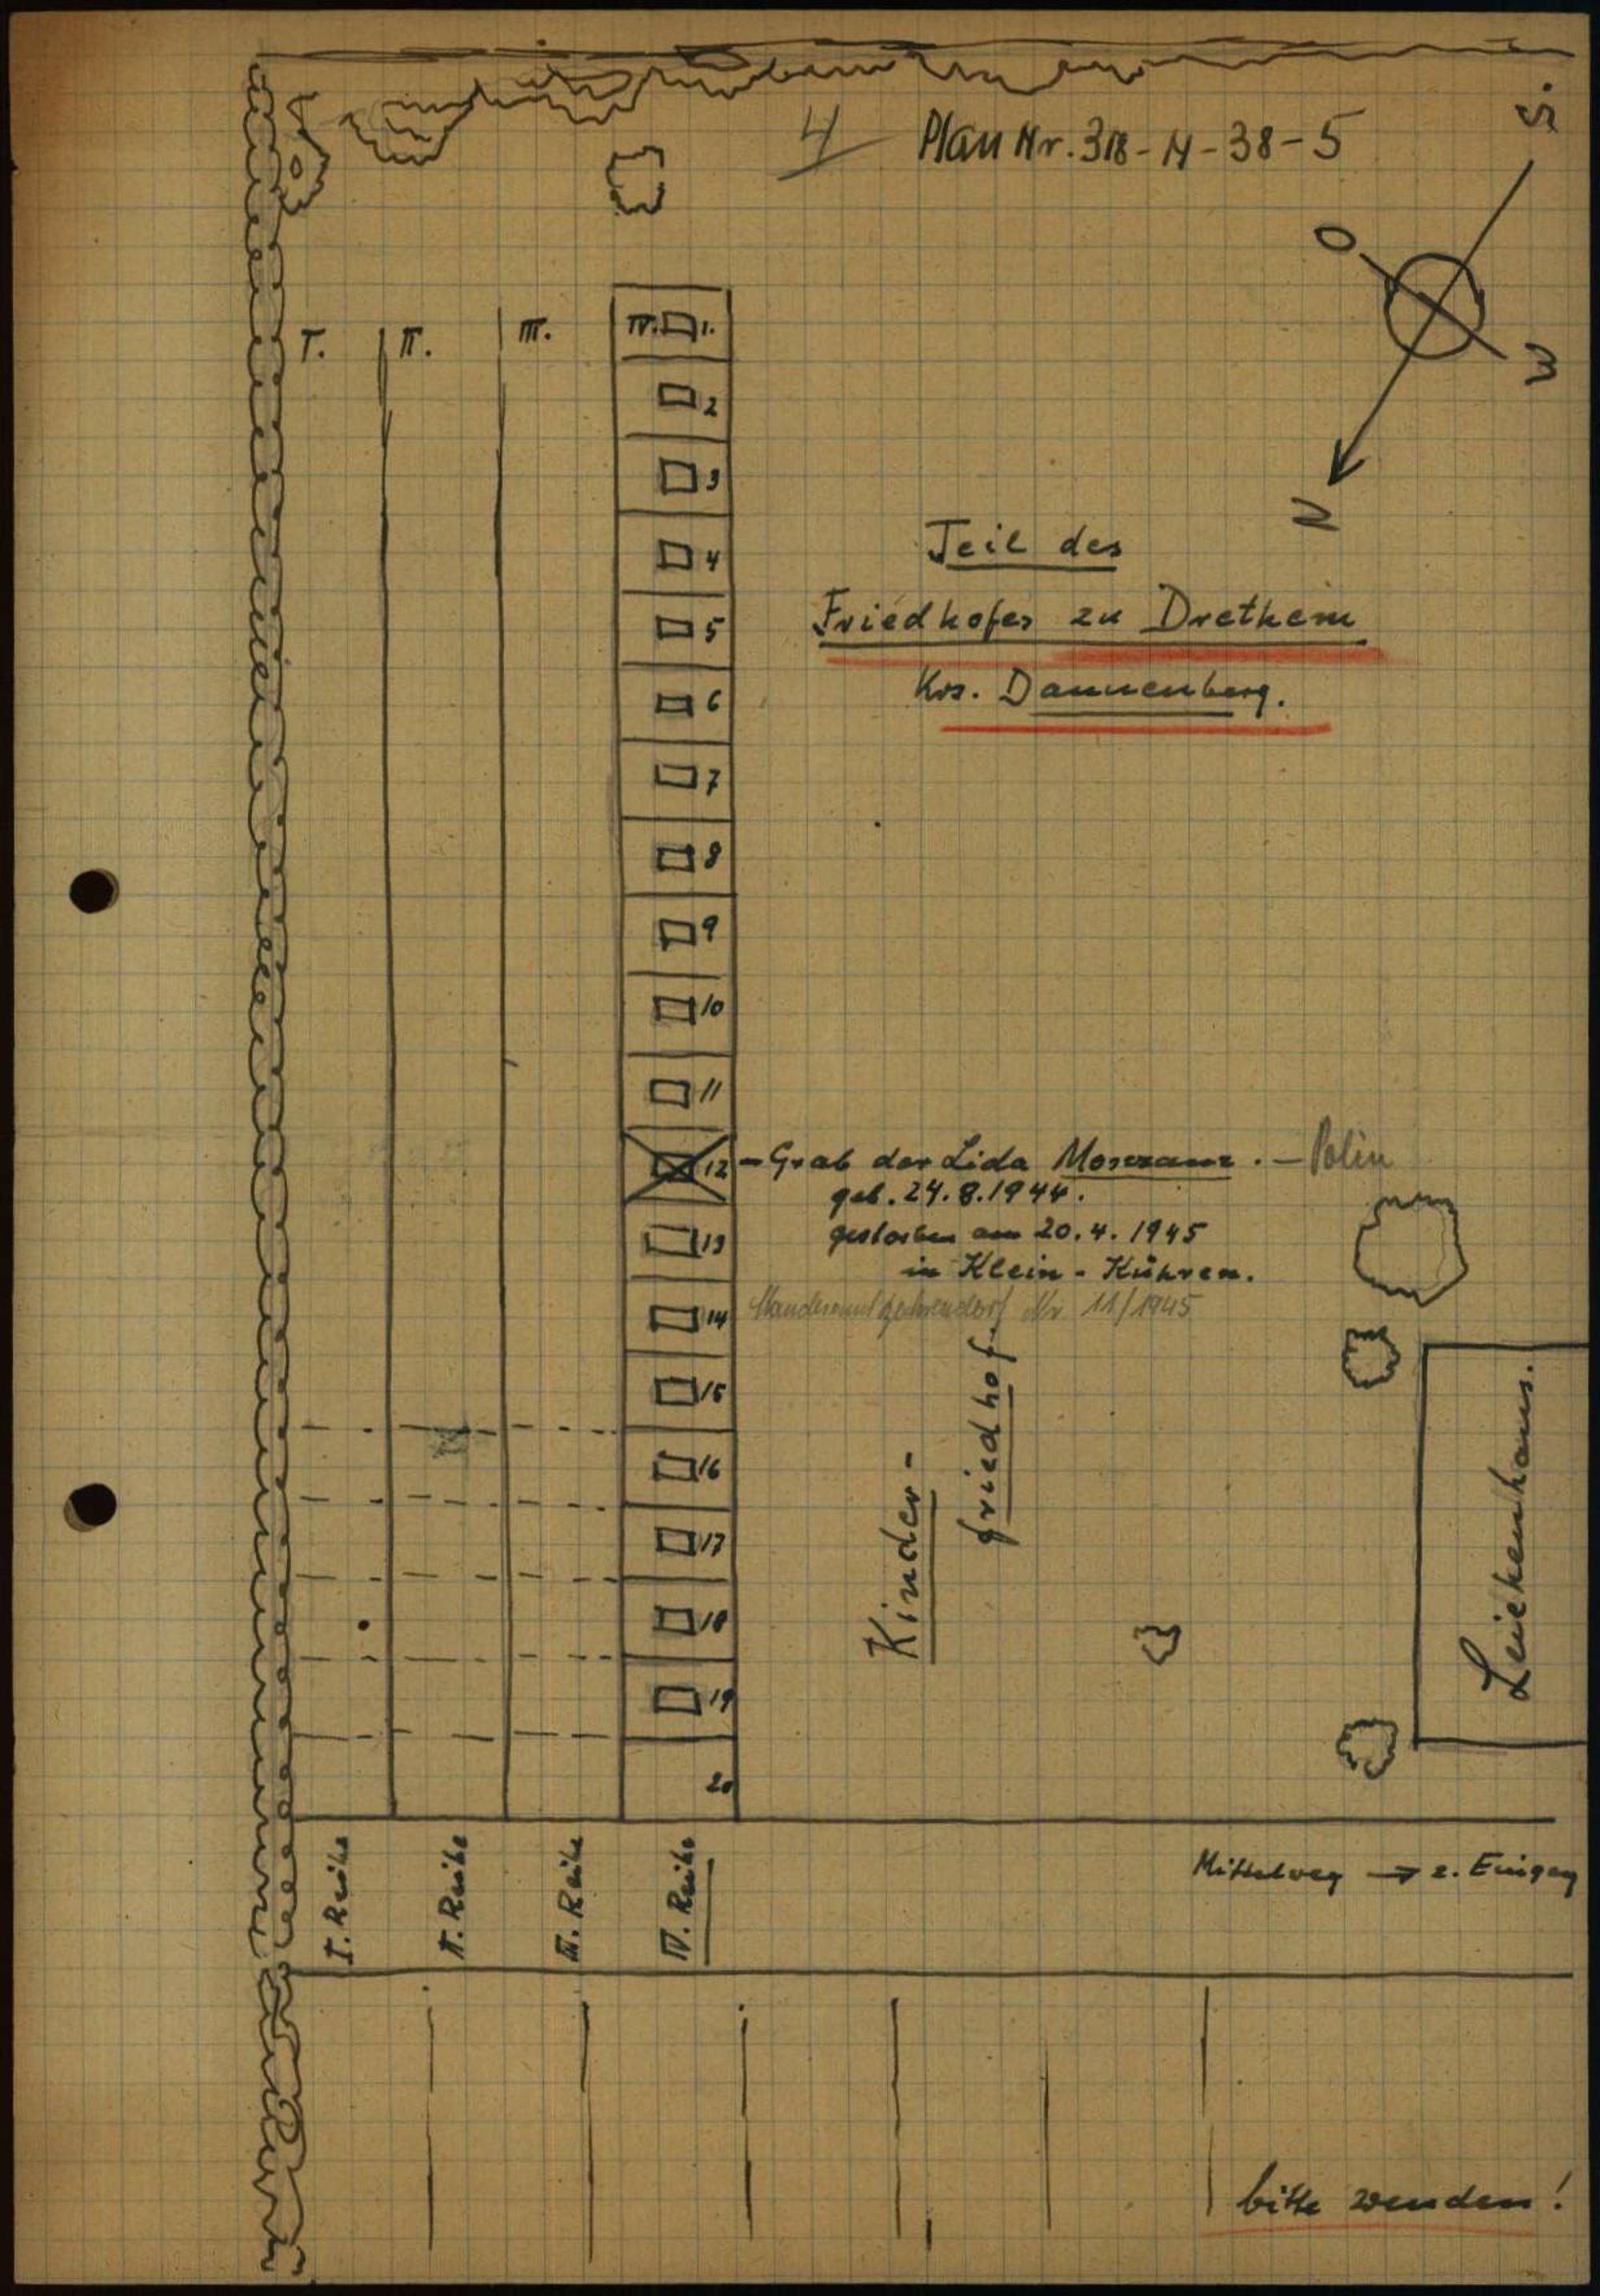 4 Plan Nr. 318-N-38-5
S.
O
W
N
I. II. III. IV. 1.
2
3
4
5
6
7
8
9
10
11
12
13
14
15
16
17
18
19
20
Teil des
Friedhofes zu Drethem
Krs. Dannenberg.
- Grab der Lida . - Polin
geb. 24.8.1944.
gestorben am 20.4.1945
in Klein-Kühren.
Standesamt Nr. 11/1945
Kinder-
friedhof.
Leichenhaus.
I. Reihe
II. Reihe
III. Reihe
IV. Reihe
Mittelweg → z. Eingang
bitte wenden!